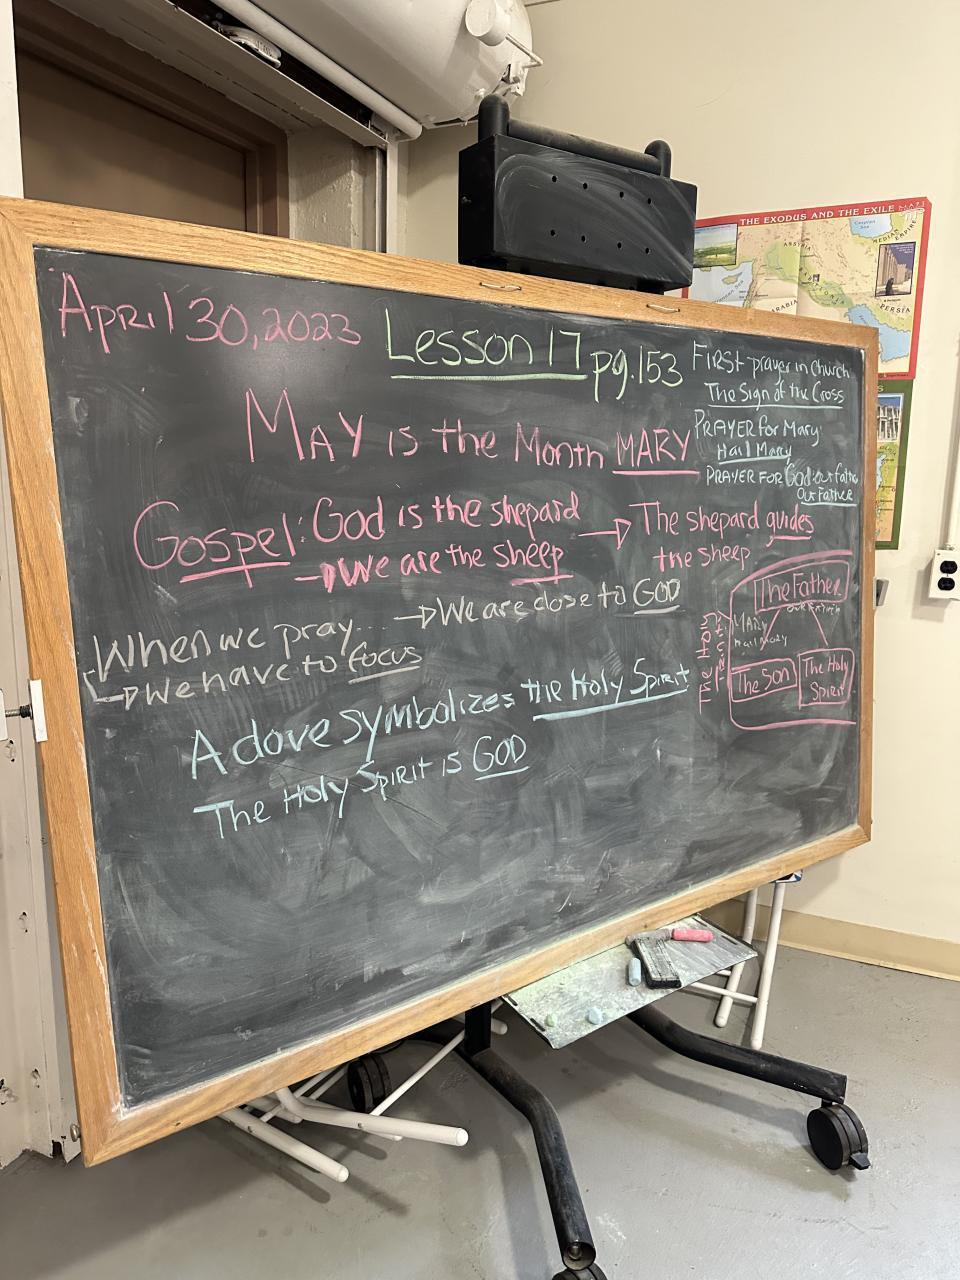 April 30, 2023
Lesson 17 pg.153
MAY is the Month MARY
Gospel: God is the shepard
→ We are the sheep
→ The shepard guides
the sheep
When we pray.... → We are close to GOD
→ We have to focus
A dove symbolizes the Holy Spirit
The Holy Spirit is GOD
First prayer in church
The Sign of the Cross
PRAYER for Mary:
Hail Mary
PRAYER FOR God our father
Our Father
The Holy
Trinity
The Father
our Father
MARY
Hail Mary
The Son
The Holy
Spirit
THE EXODUS AND THE EXILE
MEDIAN
EMPIRE
Caspian
Sea
PERSIA